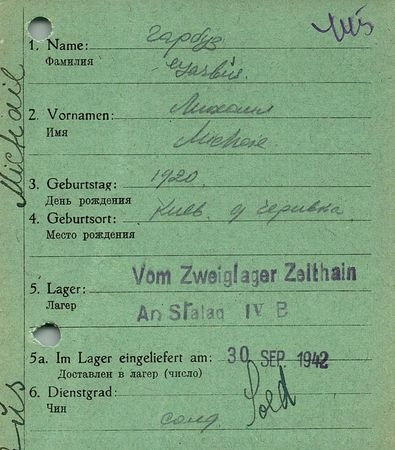 1. Name: Гарбуз
Фамилия
2. Vornamen: Михаил
Имя
3. Geburtstag: 1920.
День рождения
4. Geburtsort: Киев. д
Место рождения
Vom Zweiglager Zeithain
5. Lager:
Лагер
An Stalag IV B
5a. Im Lager eingeliefert am: 30 SEP 1942
Доставлен в лагер (число)
6. Dienstgrad: Sold
Чин
солд.
Michail